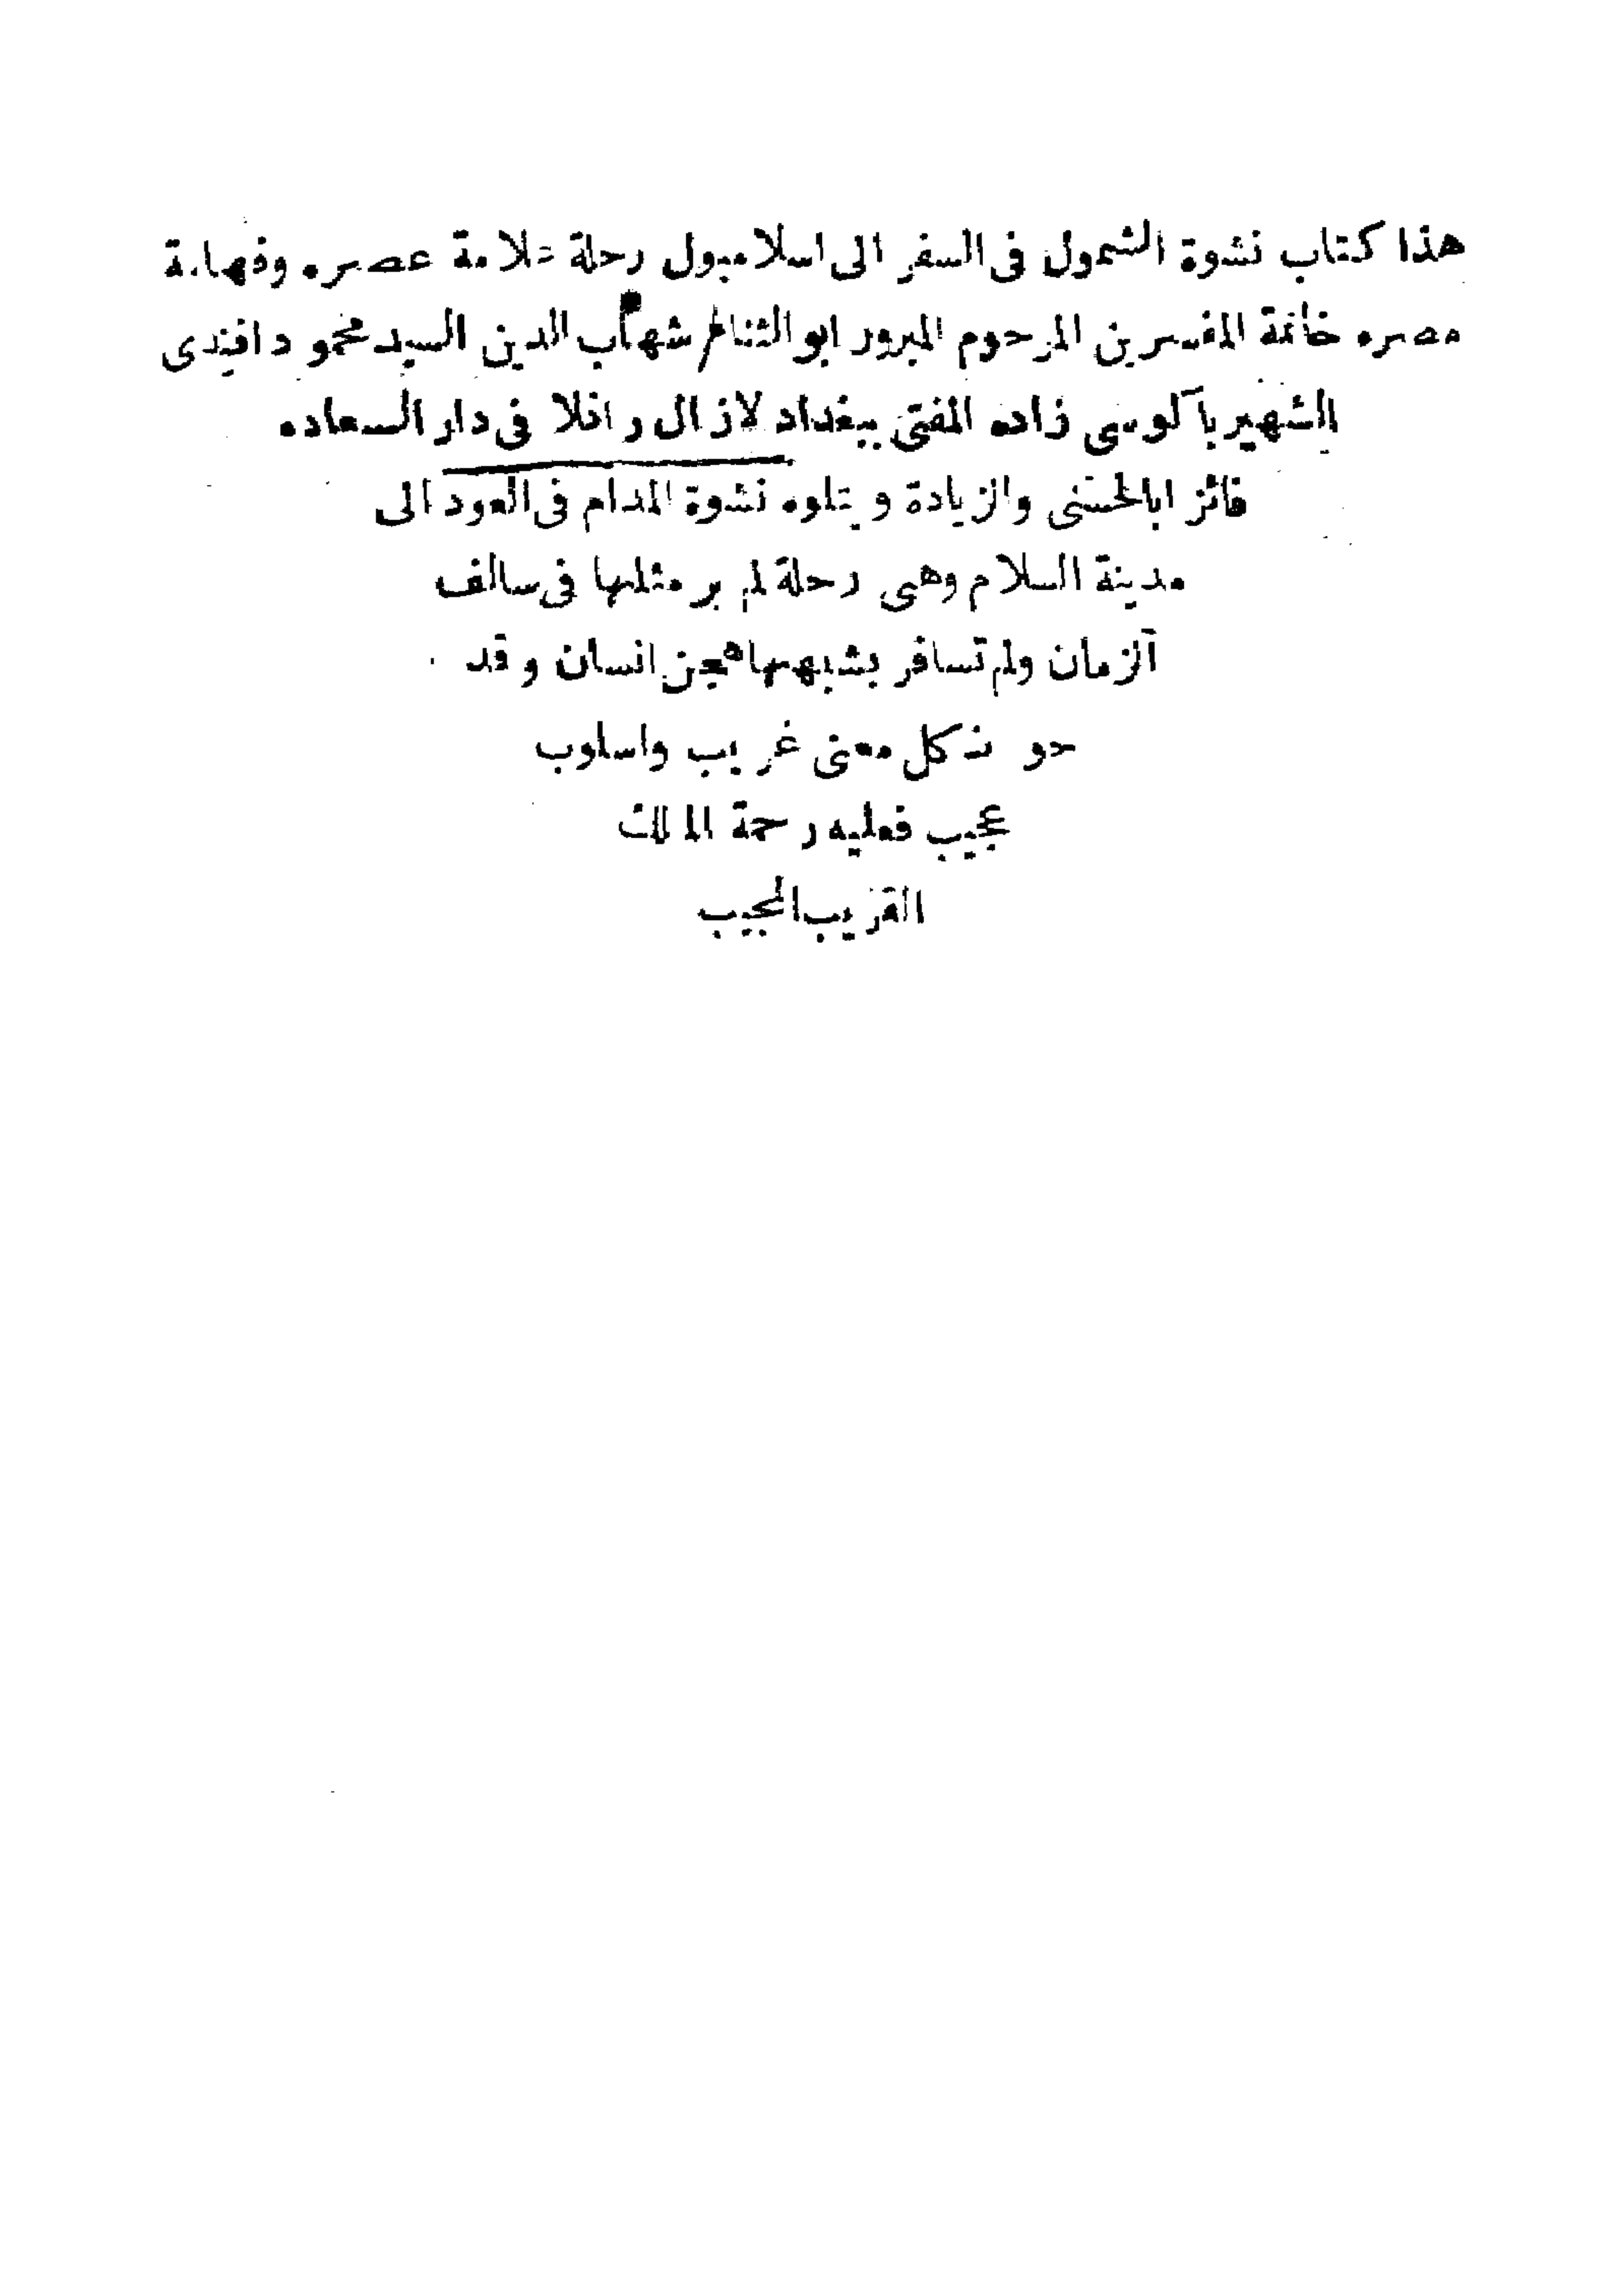 هذا كتاب نشوة الشمول فى السفر الى اسلامبول رحلة علامة عصره وفهامة
مصره خاتمة المفسرين المرحوم المبرور ابو الثناء شهاب الدين السيد محمود افندى
الشهير بآلوسى زاده المفتى ببغداد لازال رافلا فى دار السعاده
فائز ابالحسنى والزيادة ويتلوه نشوة المدام فى العود الى
مدينة السلام وهى رحلة لم ير مثلها فى سالف
الزمان ولم تسافر بشبهها هجن انسان وقد
حوت كل معنى غريب واسلوب
عجيب فعليه رحمة الملك
القريب المجيب